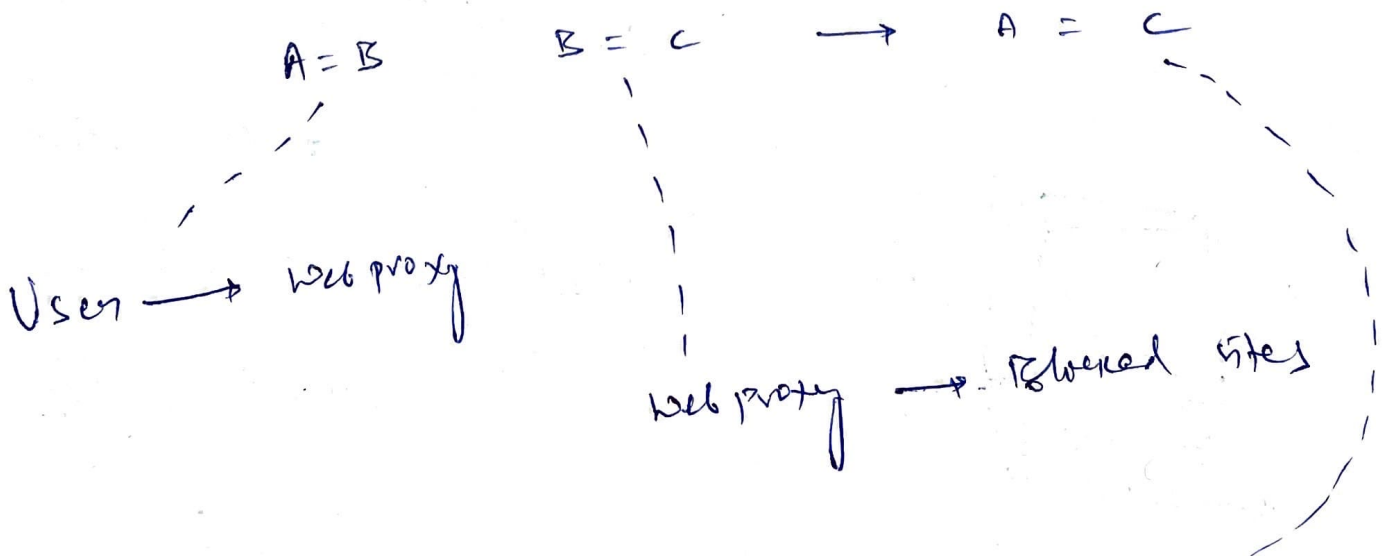 A = B    B = C → A = C
User → Web proxy
Web proxy → Blocked sites